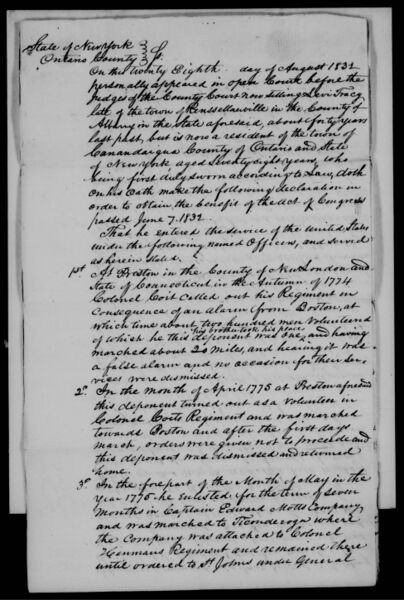 State of New York } S.
Ontario County }
On this twenty Eighth day of August 1832
personally appeared in open Court before the
Judges of the County Court now sitting Levi Tracy
late of the town of Renssellaerville in the County of
Albany in the state aforesaid, about forty years
last past, but is now a resident of the town of
Canandaigua County of Ontario and State
of New York aged Seventy eight years, who
being first duly sworn according to Law, doth
on his Oath make the following declaration in
order to obtain the benefit of the act of Congress
passed June 7. 1832
That he entered the service of the United States
under the following named Officers, and served
as herein stated.
1st At Preston in the County of New London and
State of Connecticut in the Autumn of 1774
Colonel Coit Called out his Regiment in
Consequence of an alarm from Boston, at
which time about two hundred men Volunteered
this brother took his place
of which he this deponent was one, and having
marched about 20 Miles, and hearing it was
a false alarm and no occasion for their Ser-
vices were dismissed.
2d In the month of April 1775 at Preston aforesaid
this deponent turned out as a Volunteer in
Colonel Coits Regiment and was marched
towards Boston and after the first days
march, orders were given not to proceed and
this deponent was dismissed and returned
home.
3d In the forepart of the Month of May in the
Year 1775 he enlisted for the term of seven
Months in Captain Edward Motts Company,
and was marched to Ticonderoga where
the Company was attached to Colonel
Henmans Regiment and remained there
until ordered to St Johns under General